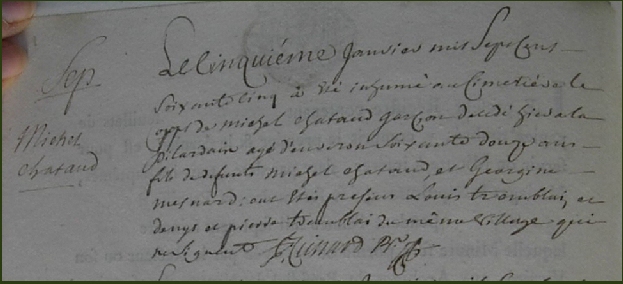 Sep.
Michel
chataud
Le Cinquiéme Janvier mil Sept Cens
Soixante cinq à été inhumé au Cimetière le
corps de michel chataud garçon decedé hier a la
pilardain agé d'environ Soixante douze ans
fils de defunts michel chataud, et Georgine
mesnard: ont étés presens Louis tremblai, et
denys et pierre tremblai du même village qui
ne signent